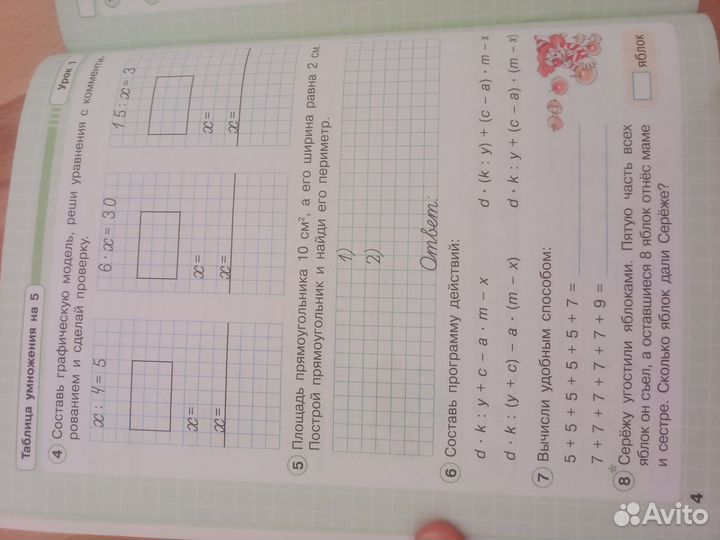 Таблица умножения на 5
Урок 1
4 Составь графическую модель, реши уравнения с комменти-
рованием и сделай проверку.
x : 4 = 5
6 · x = 30
15 : x = 3
x =
x =
x =
x =
x =
x =
5 Площадь прямоугольника 10 см², а его ширина равна 2 см.
Построй прямоугольник и найди его периметр.
1)
2)
Ответ:
6 Составь программу действий:
d · k : y + c − a · m − x
d · (k : y) + (c − a) · m − x
d · k : (y + c) − a · (m − x)
d · k : y + (c − a) · (m − x)
7 Вычисли удобным способом:
5 + 5 + 5 + 5 + 5 + 7 =
7 + 7 + 7 + 7 + 7 + 9 =
8* Серёжу угостили яблоками. Пятую часть всех
яблок он съел, а оставшиеся 8 яблок отнёс маме
и сестре. Сколько яблок дали Серёже?
яблок
4
Avito